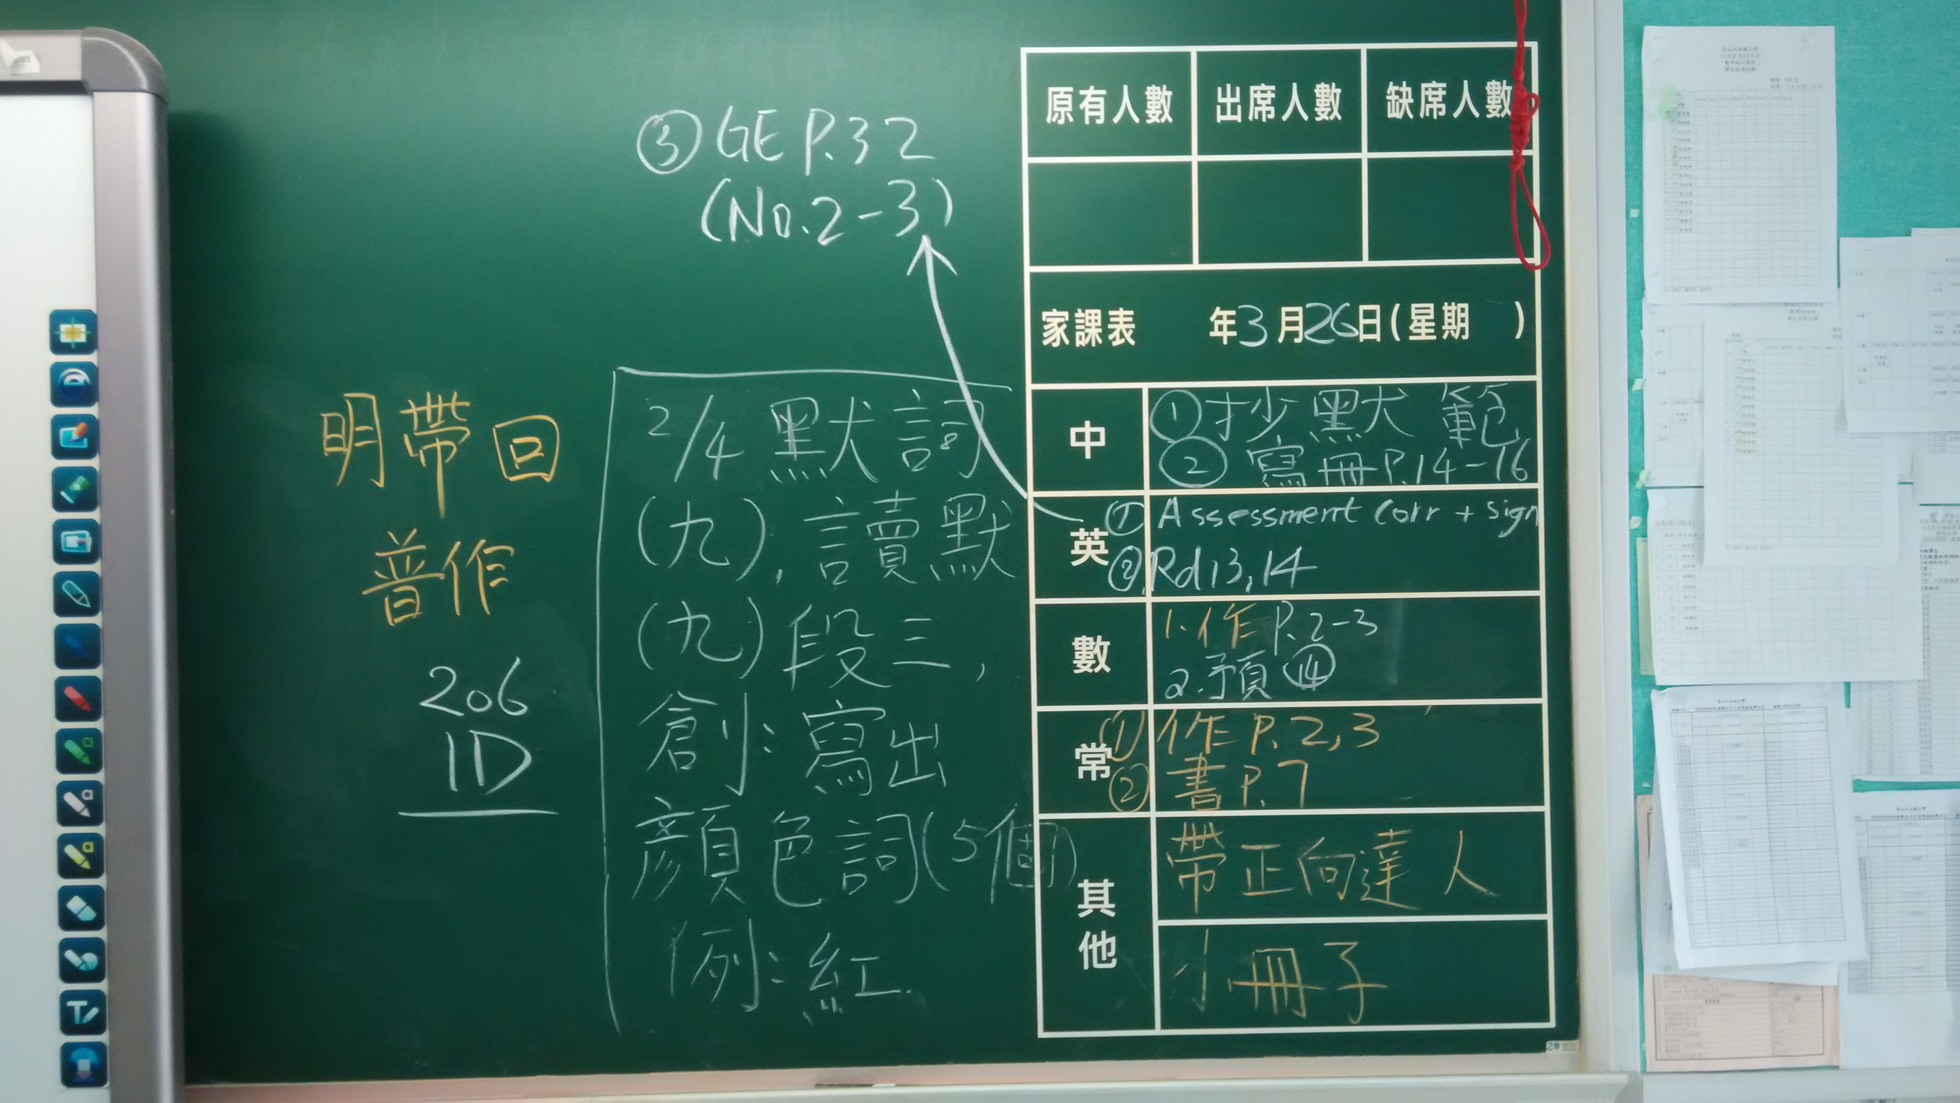 ③GE P.32
(No.2-3)
明帶回
普作
206
1D
2/4 默詞
(九),讀默
(九)段三,
創:寫出
顏色詞(5個)
例:紅.
原有人數 出席人數 缺席人數
家課表 年3月26日(星期 )
中 ①抄默 範
②寫冊P.14-16
英 ①Assessment Corr + sign
②Rd13,14
數 1.作P.2-3
2.預⑭
常 ①作P.2,3
②書P.7
其他 帶正向達人
小冊子